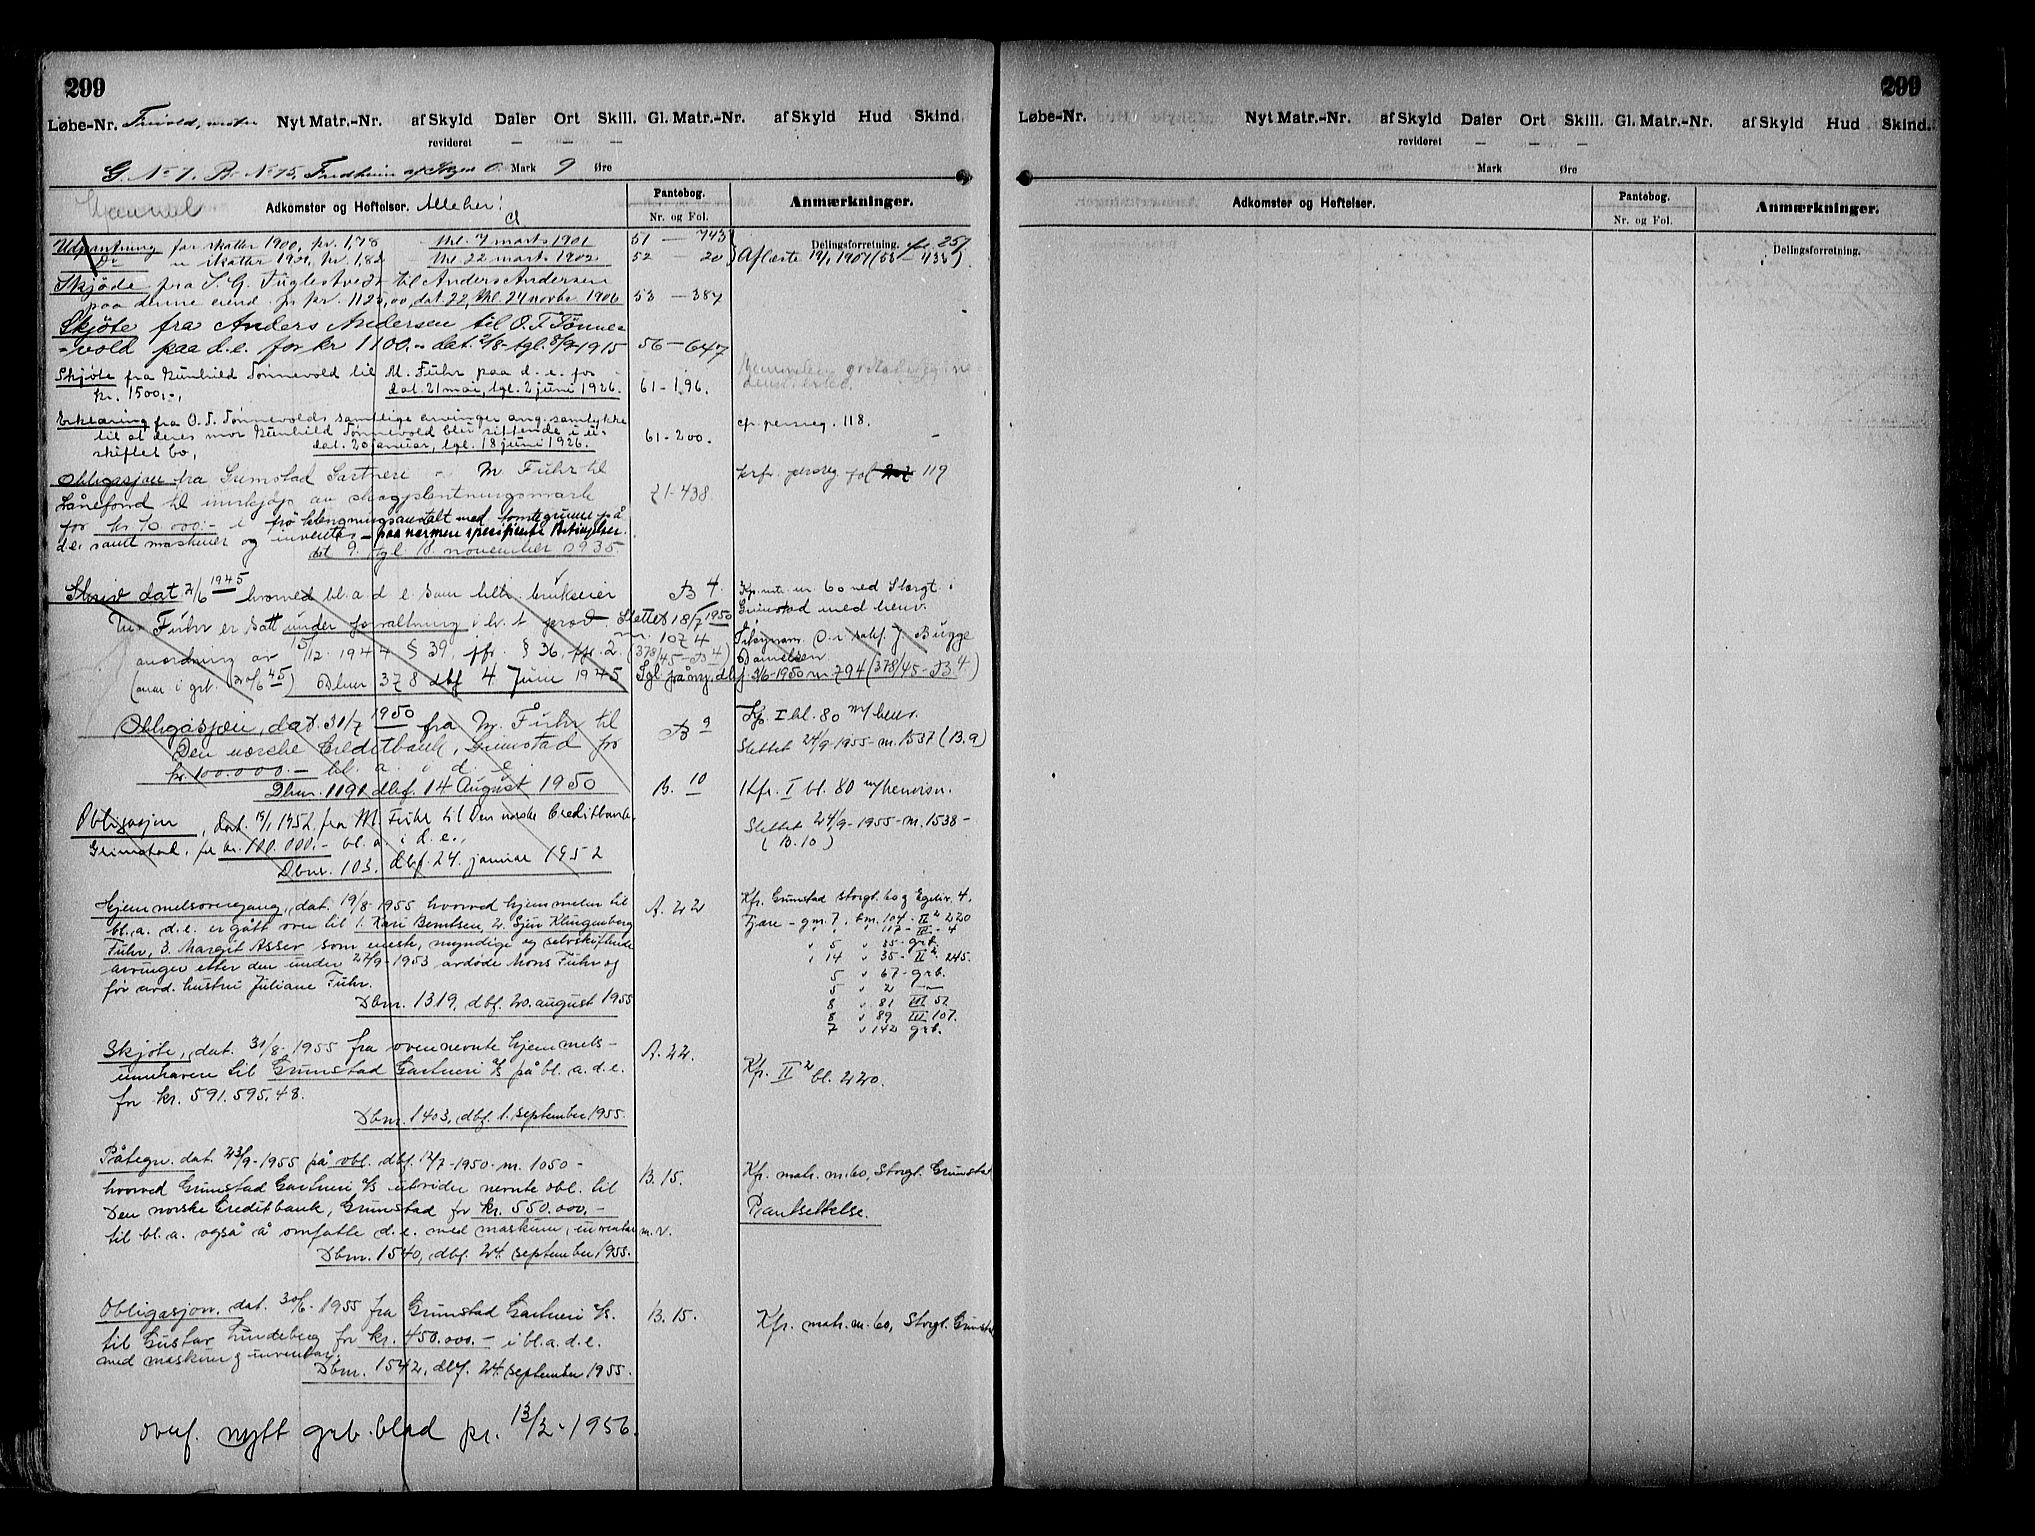 299
Løbe-Nr. Frivold, nedre Nyt Matr.-Nr. af Skyld Daler Ort Skill. Gl. Matr.-Nr. af Skyld Hud Skind.
revideret — — —
G. No 7. B. No 75, Fredheim af Skyld 0 Mark 9 Øre
Adkomster og Heftelser.
Pantebog.
Nr. og Fol.
Anmærkninger.
Delingsforretning.
Udpantning for skatter 1900, kr. 1,78 thl. 7 marts 1901 51 — 743
Do " skatter 1901, kr. 1,82 thl. 22 marts 1902 52 — 20 Aflæste 19/1 1907
Skjøde fra S. G. Fuglestvedt til Anders Andersen
paa denne eiend. for kr. 1125,00, dat. 22, thl. 24 novbr. 1906 53 — 387
Skjøte fra Anders Andersen til O. T. Tønne-
vold paa d.e. for kr 1100.- dat. 2/8 tgl. 8/9 1915 56 — 647
Skjøte fra Gunhild Tønnevold til M. Fuhr paa d. e. for
kr. 1500,-, dat. 21 mai, tgl. 2 juni 1926. 61 - 196.
Erklæring fra O. T. Tønnevolds samtlige arvinger ang. samtykke
til at deres mor Gunhild Tønnevold blir sittende i u-
skiftet bo, dat. 20 januar, tgl. 18 juni 1926. 61 - 200. cfr. persreg. 118.
Obligasjon fra Grimstad Gartneri - M. Fuhr til
Lånefond til innkjøp av skogplantningsmark
for kr. 10 000:- i frø klengningsanstalt med tomtegrunn på
d.e. samt maskiner og inventar - paa nærmere spesifiserte Betingelser.
dat. 9. tgl. 11. november 1935.
71 - 438.
krfr. persreg fol 119
Skriv dat 2/6 1945 hvorved bl. a d e. som tilh. brukseier
M. Fuhr er satt under forvaltning i h. t. prov.
anordning av 15/12. 1944 § 39, jfr. § 36, jfr. 2.
Dbnr 378 dbf 4 Juni 1945
B 4.
Slettet 18/7 1950
nr. 1074
(378/45 - B 4)
Kfr. mtr. nr. 60 ved Storgt. i
Grimstad med henv.
Tilsynsm. O.r sakf. J. Bugge
Danielsen
Tgl. påny. dbf 3/6-1950 nr 794 (378/45 - B 4)
Obligasjon, dat. 31/7 1950 fra M. Fuhr til
Den norske Creditbank, Grimstad for
kr. 100.000.- bl. a. i d. e.
Dbnr. 1191 dbf. 14 August 1950
B 9
Kfr. I bl. 80 m/henv.
Slettet 24/9-1955 - nr. 1537 (B. 9)
Obligasjon, dat. 19/1 1952, fra M. Fuhr til Den norske Creditbank,
Grimstad, for kr. 100.000:- bl. a. i d. e.,
Dbnr. 103. dbf. 24. januar 1952
B. 10
Kfr. I bl. 80 m/henvisn.
Slettet 24/9-1955 - nr. 1538 -
(B. 10)
Hjemmelsovergang, dat. 19/8-1955 hvorved hjemmelen til
bl. a. d. e. er gått over til 1. Kari Berntsen, 2. Sjur Klingenberg
Fuhr, 3. Margit Asser som eneste, myndige og selvskiftende
arvinger etter den under 27/9-1953 avdøde Mons Fuhr og
før avd. hustru Juliane Fuhr.
Dbnr. 1319, dbf. 20. august 1955
A. 22
Kfr. Grimstad Storgt. 60 og Egelv. 4,
Fjære - gnr. 7, bnr. 104 - II² 220
" " " 117 - III - 4
" 5 " 35 - grb.
" 14 " 35 - II² 245.
5 " 67 - grb.
5 " 2 —
8 " 81 III 52
8 " 89 III 107.
7 " 142 grb.
Skjøte, dat. 31/8-1955 fra ovennevnte hjemmels-
innehavere til Grimstad Gartneri A/S på bl. a. d. e.
for kr. 591.595,48.
Dbnr. 1403, dbf. 1. september 1955.
A. 22.
Kfr. II² bl. 220.
Påtegn. dat. 23/9-1955 på obl. dbf. 12/7-1950 - nr. 1050 -
hvorved Grimstad Gartneri A/S utvider nevnte obl. til
Den norske Creditbank, Grimstad for kr. 550.000,-
til bl. a. også å omfatte d. e. med maskiner, inventar m. v.
Dbnr. 1540, dbf. 24. september 1955.
B. 15.
Kfr. matr. nr. 60, Storgt. Grimstad
Pantsettelse.
Obligasjon, dat. 30/6-1955 fra Grimstad Gartneri A/S.
til Gustav Lindeberg for kr. 450.000.- i bl. a. d. e.
med maskiner og inventar.
Dbnr. 1542, dbf. 24. september 1955.
B. 15.
Kfr. matr. nr. 60, Storgt. Grimstad
overf. nytt grb. blad pr. 13/2-1956.
299
Løbe-Nr. Nyt Matr.-Nr. af Skyld Daler Ort Skill. Gl. Matr.-Nr. af Skyld Hud Skind.
revideret — — —
Mark Øre
Adkomster og Heftelser.
Pantebog.
Nr. og Fol.
Anmærkninger.
Delingsforretning.